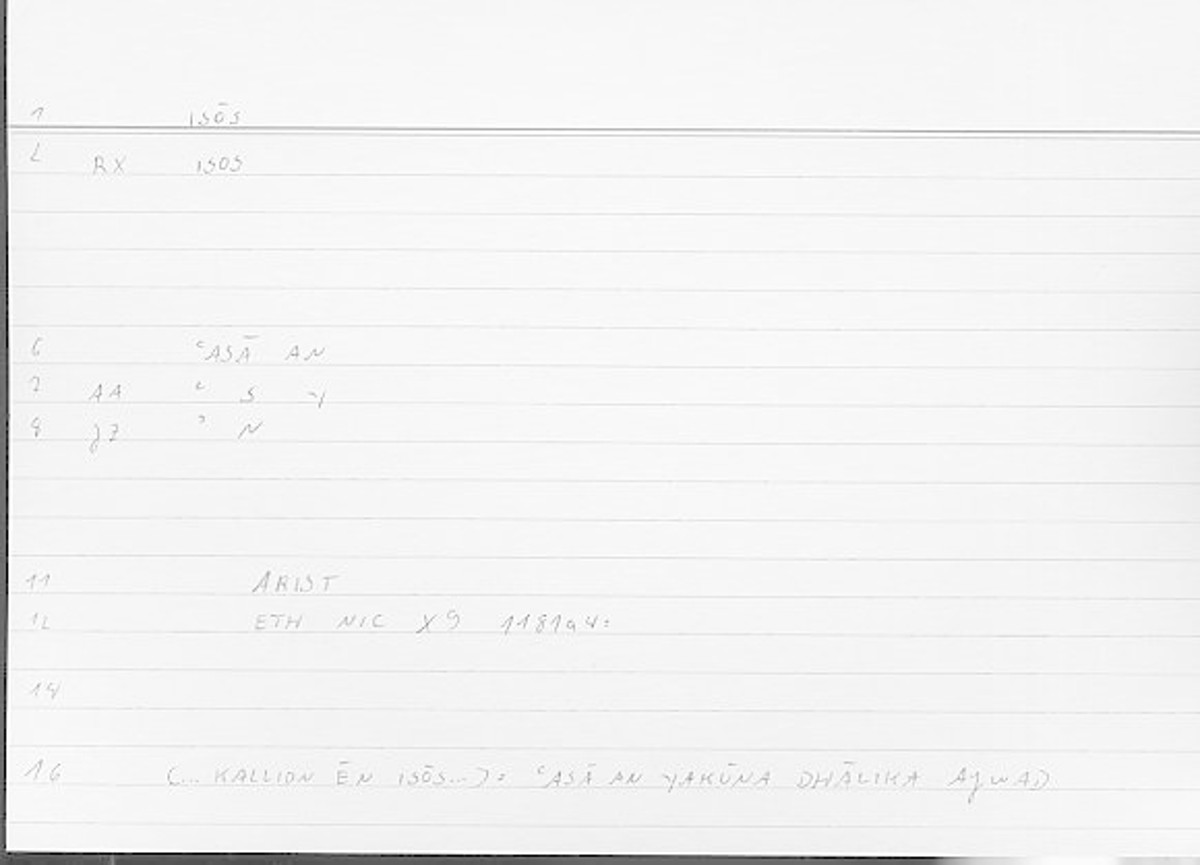 1 ISŌS
2 RX ISOS
6 ʿASĀ AN
7 AA ʿ S Y
8 JZ ʾ N
11 ARIST
12 ETH NIC X9 1181a4:
14
16 (... KALLION ĒN ISŌS...): ʿASĀ AN YAKŪNA DHĀLIKA AJWAD